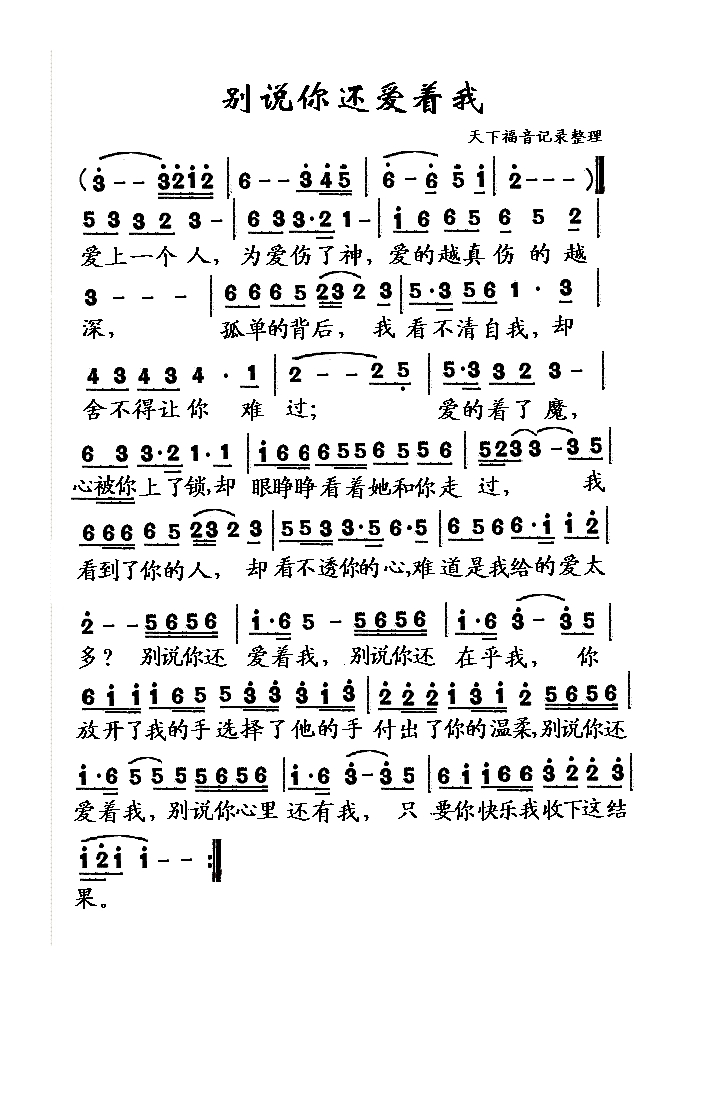 别说你还爱着我
天下福音记录整理
(3--3212|6--345|6-651|2---)‖
53323-|633·21-|166565 2|
爱上一个人，为爱伤了神，爱的越真伤的越
3---|66652323|5·3561·3|
深，孤单的背后，我看不清自我，却
43434·1|2--25|5·3323-|
舍不得让你难过；爱的着了魔，
633·21·1|16665565556|5233-35|
心被你上了锁，却眼睁睁看着她和你走过，我
666652323|55533·56·5|6566·112|
看到了你的人，却看不透你的心，难道是我给的爱太
2--5656|1·65-5656|1·63-3|
多？别说你还爱着我，别说你还在乎我，你
6111655333313|22213125656|
放开了我的手选择了他的手付出了你的温柔，别说你还
1·65555656|1·63-35|6116653223|
爱着我，别说你心里还有我，只要你快乐我收下这结
1211--:‖
果。